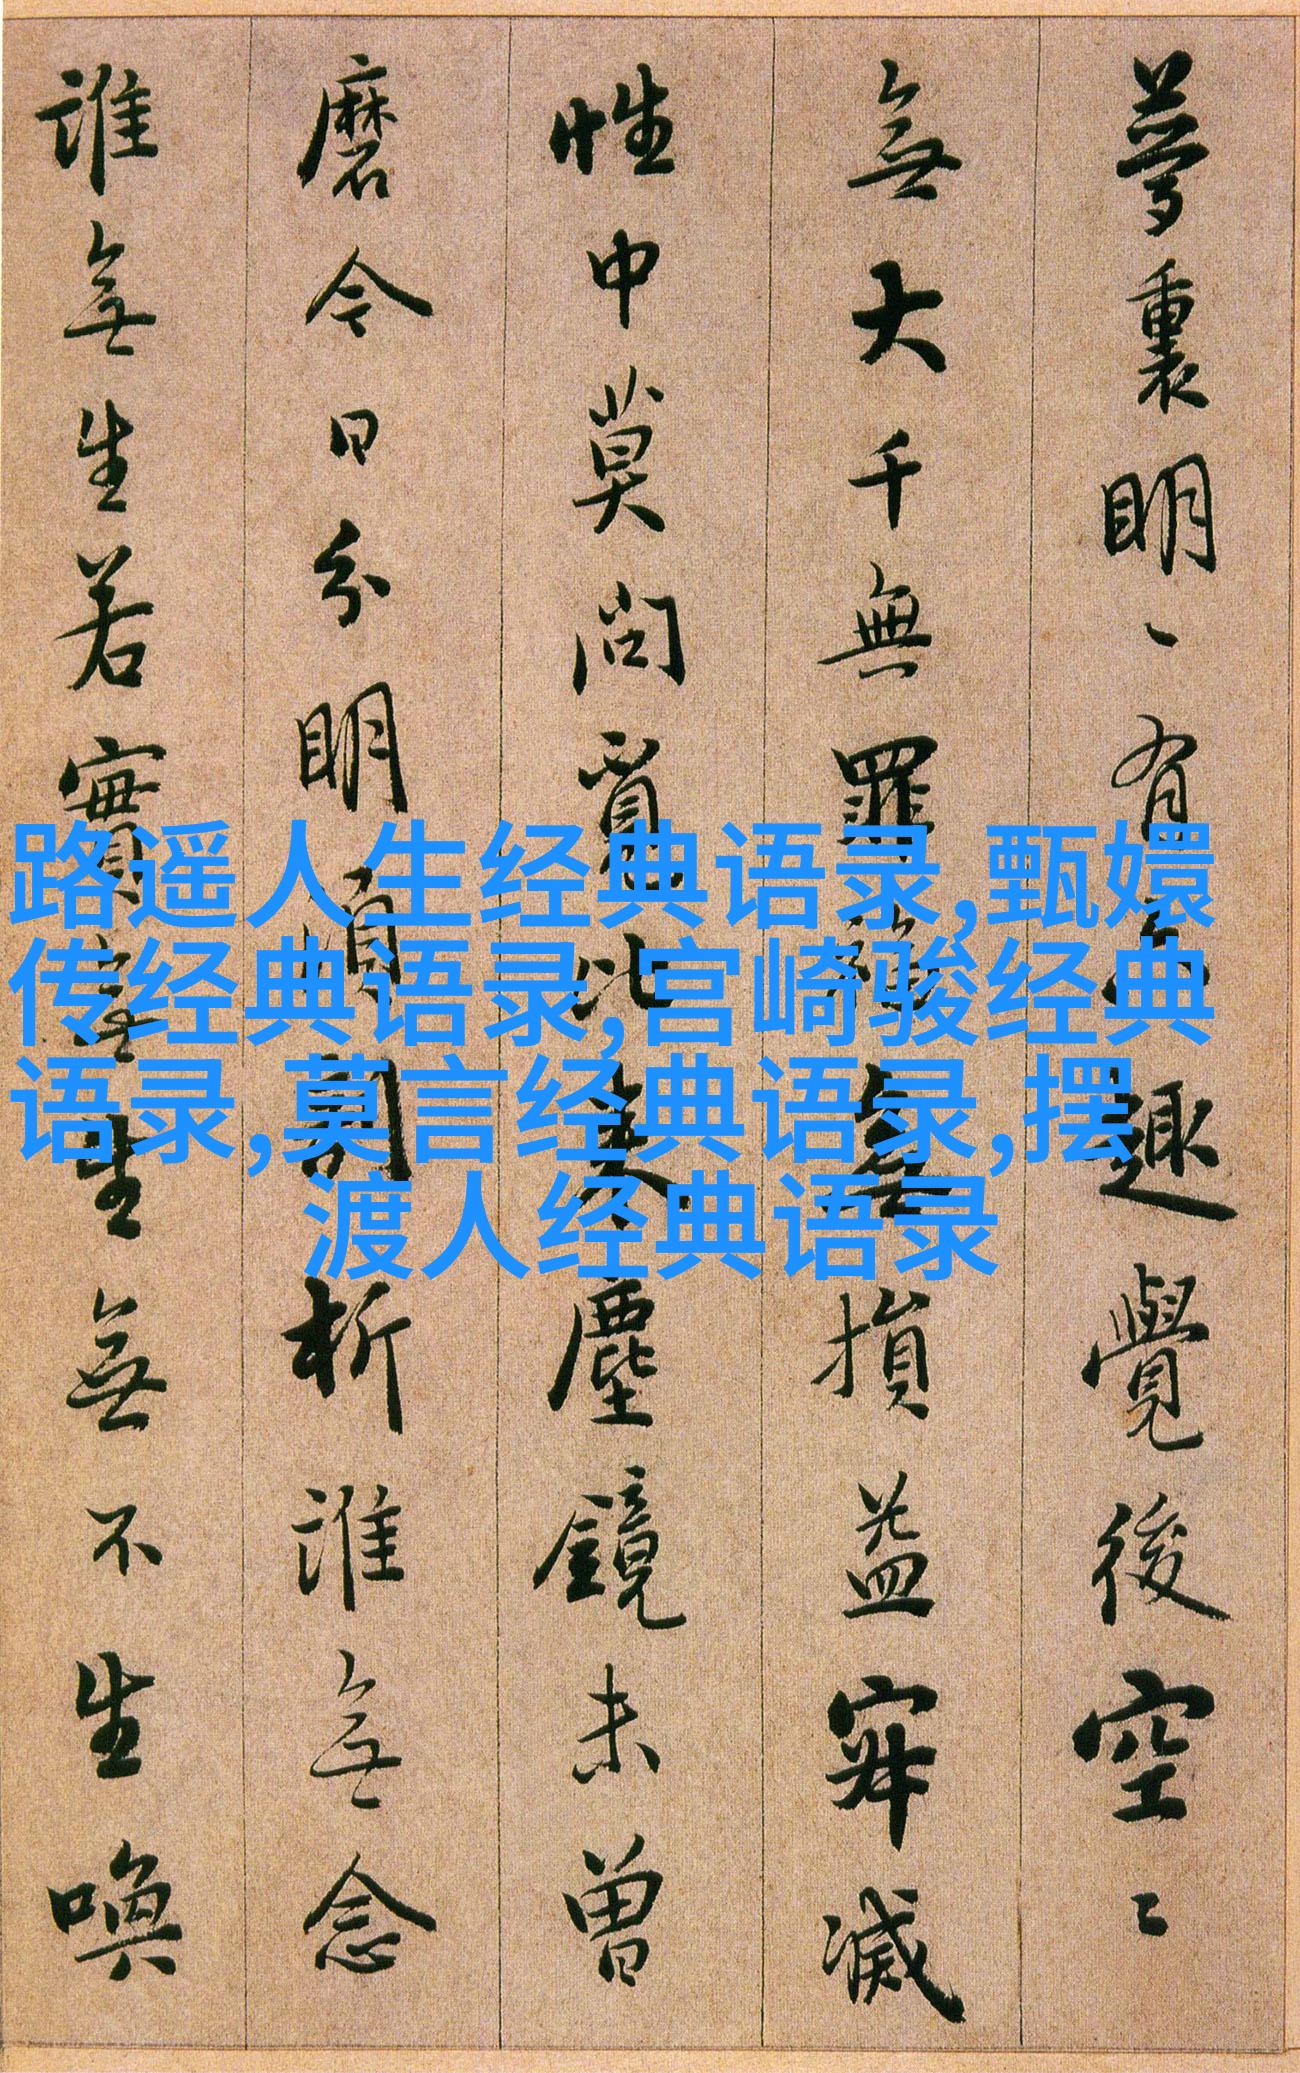 夢裏明丶有六趣覺後空〻
無大千無罪福無損益寂滅
性中莫問覓比來塵鏡未曾
磨今日分明須剖析誰無念
誰無生若實無生無不生喚
路遥人生经典语录,甄嬛
传经典语录,宫崎骏经典
语录,莫言经典语录,摆
渡人经典语录